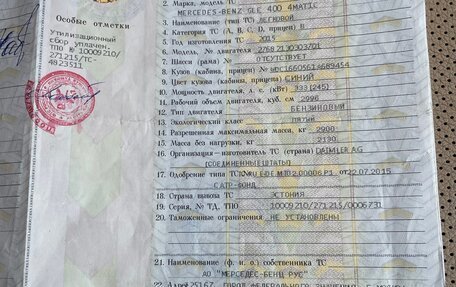 Особые отметки
Утилизационный
сбор уплачен.
ТПО № 10009210/
271215/ТС-
4823511
2. Марка, модель ТС
MERCEDES-BENZ GLE 400 4MATIC
3. Наименование (тип ТС) ЛЕГКОВОЙ
4. Категория ТС (А, В, С, D, прицеп) В
5. Год изготовления ТС 2015
6. Модель, № двигателя
7. Шасси (рама) № ОТСУТСТВУЕТ
8. Кузов (кабина, прицеп) №
9. Цвет кузова (кабины, прицепа) СИНИЙ
10. Мощность двигателя, л. с. (кВт) 333(245)
11. Рабочий объем двигателя, куб. см 2996
12. Тип двигателя БЕНЗИНОВЫЙ
13. Экологический класс ПЯТЫЙ
14. Разрешенная максимальная масса, кг 2900
15. Масса без нагрузки, кг 2130
16. Организация-изготовитель ТС (страна) DAIMLER AG
(СОЕДИНЕННЫЕ ШТАТЫ)
17. Одобрение типа ТС № от 22.07.2015
САТР-ФОНД
18. Страна вывоза ТС ЭСТОНИЯ
19. Серия, № ТД, ТПО 10009210/271215/0006731
20. Таможенные ограничения НЕ УСТАНОВЛЕНЫ
21. Наименование (ф. и. о.) собственника ТС
АО "МЕРСЕДЕС-БЕНЦ РУС"
22. Адрес